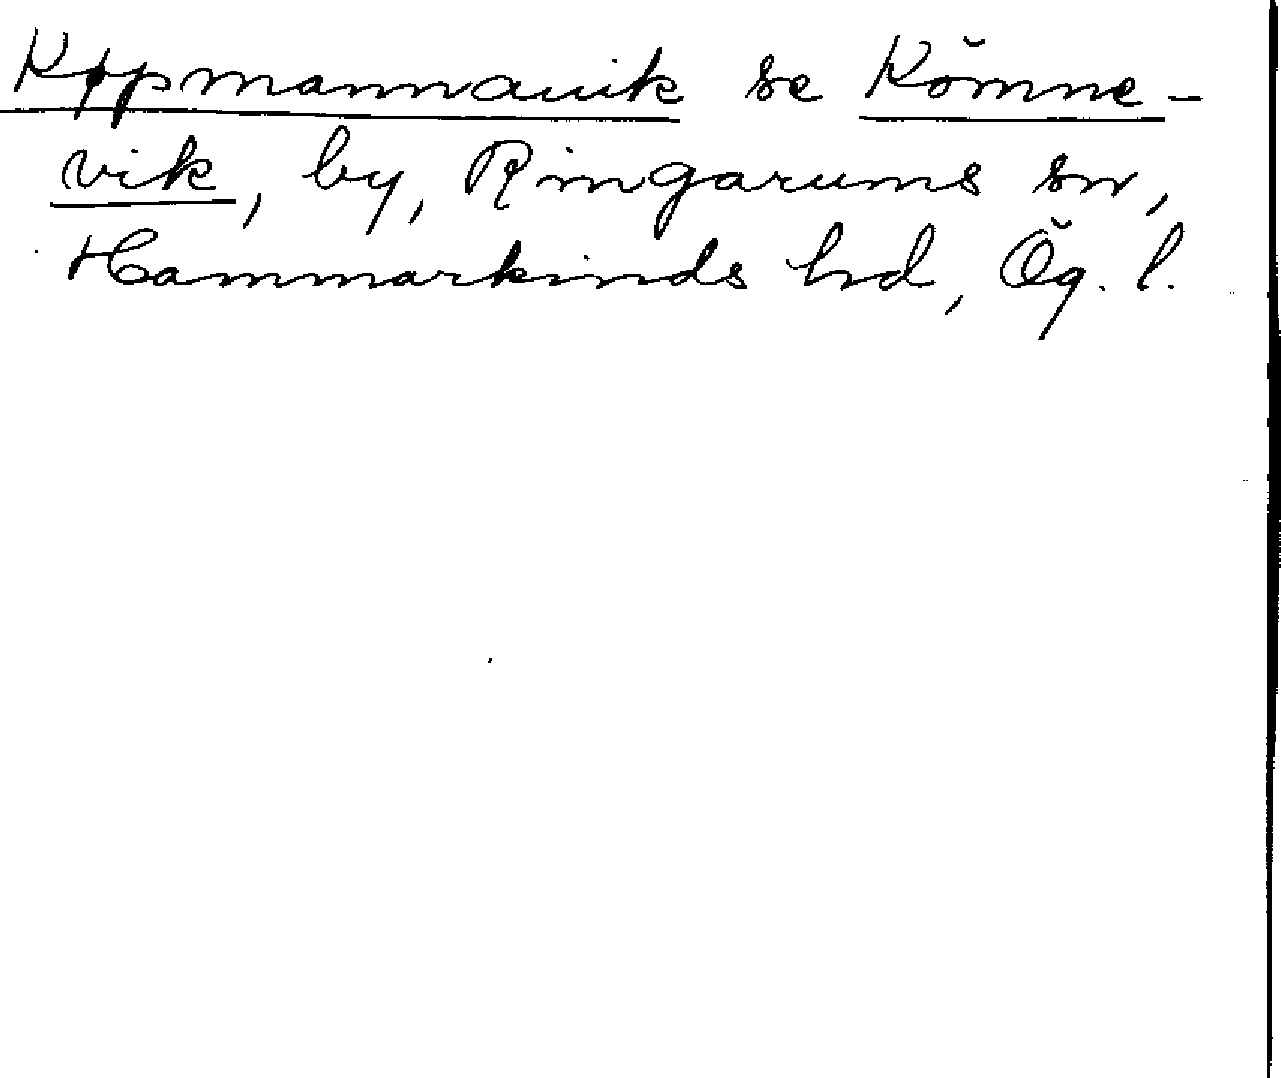 Køpmannauik se Kömne-
vik, by, Ringarums sn,
Hammarkinds hd, Ög. l.